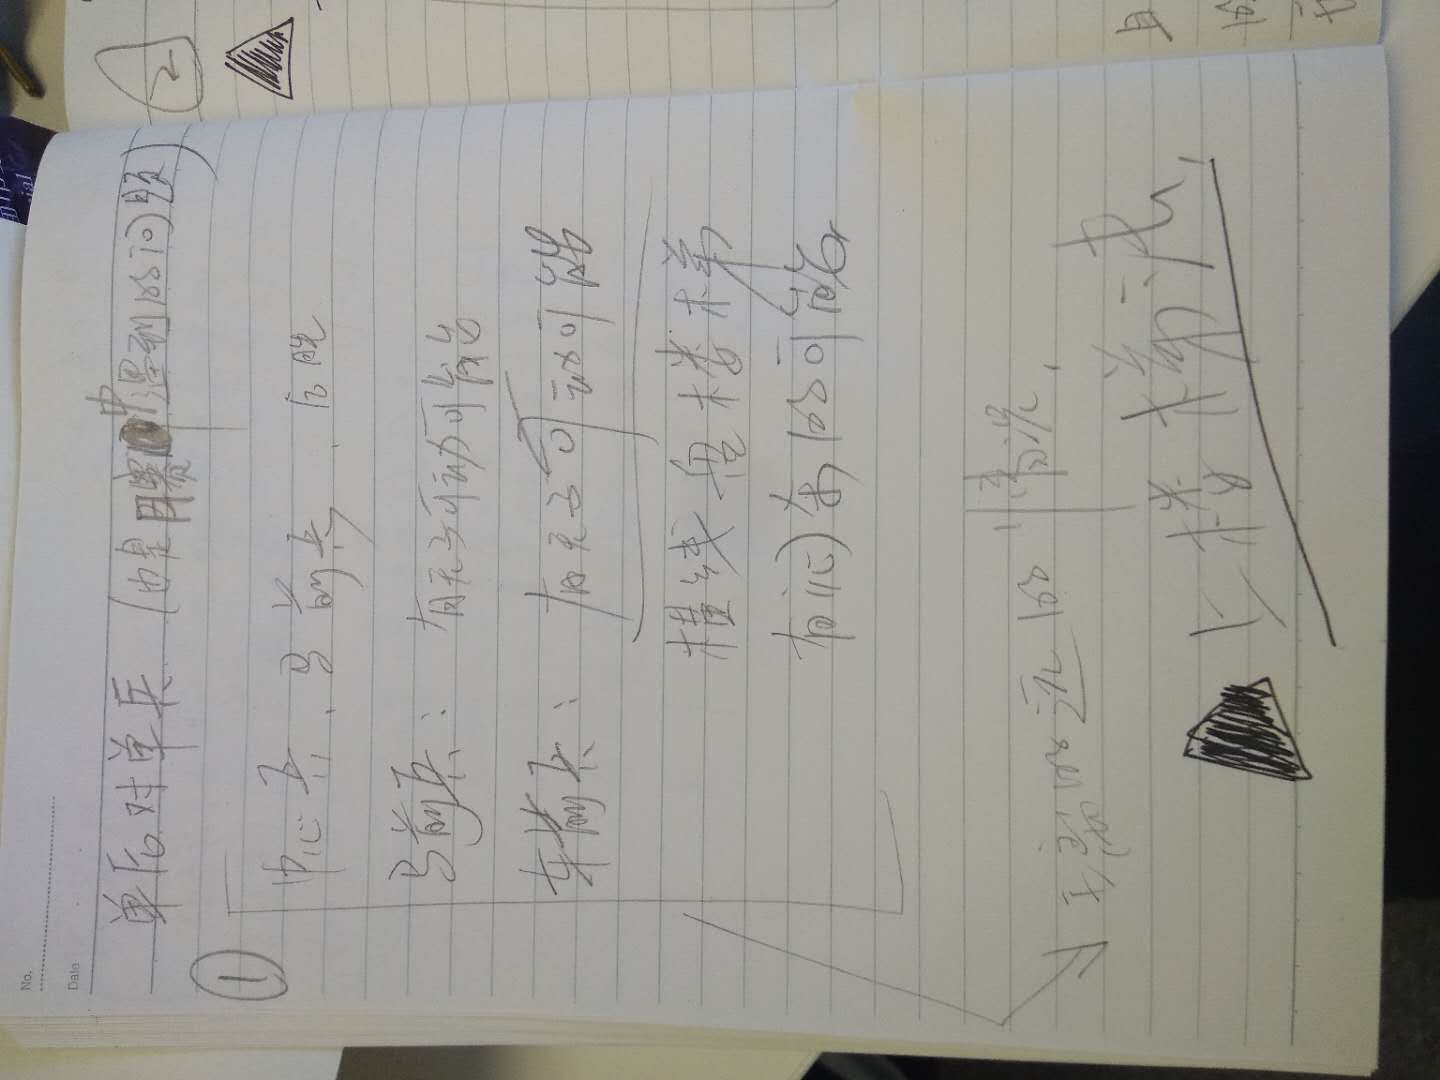 No.
Date
单后对单兵（也是月赛中遇到的问题）
①
中心兵、马前兵、后胜
马前兵：有无子可动可能
车前兵：有无子可动可能
横线兵楼梯
有记录的可能
王离的远的情况，
上楼梯法，
2